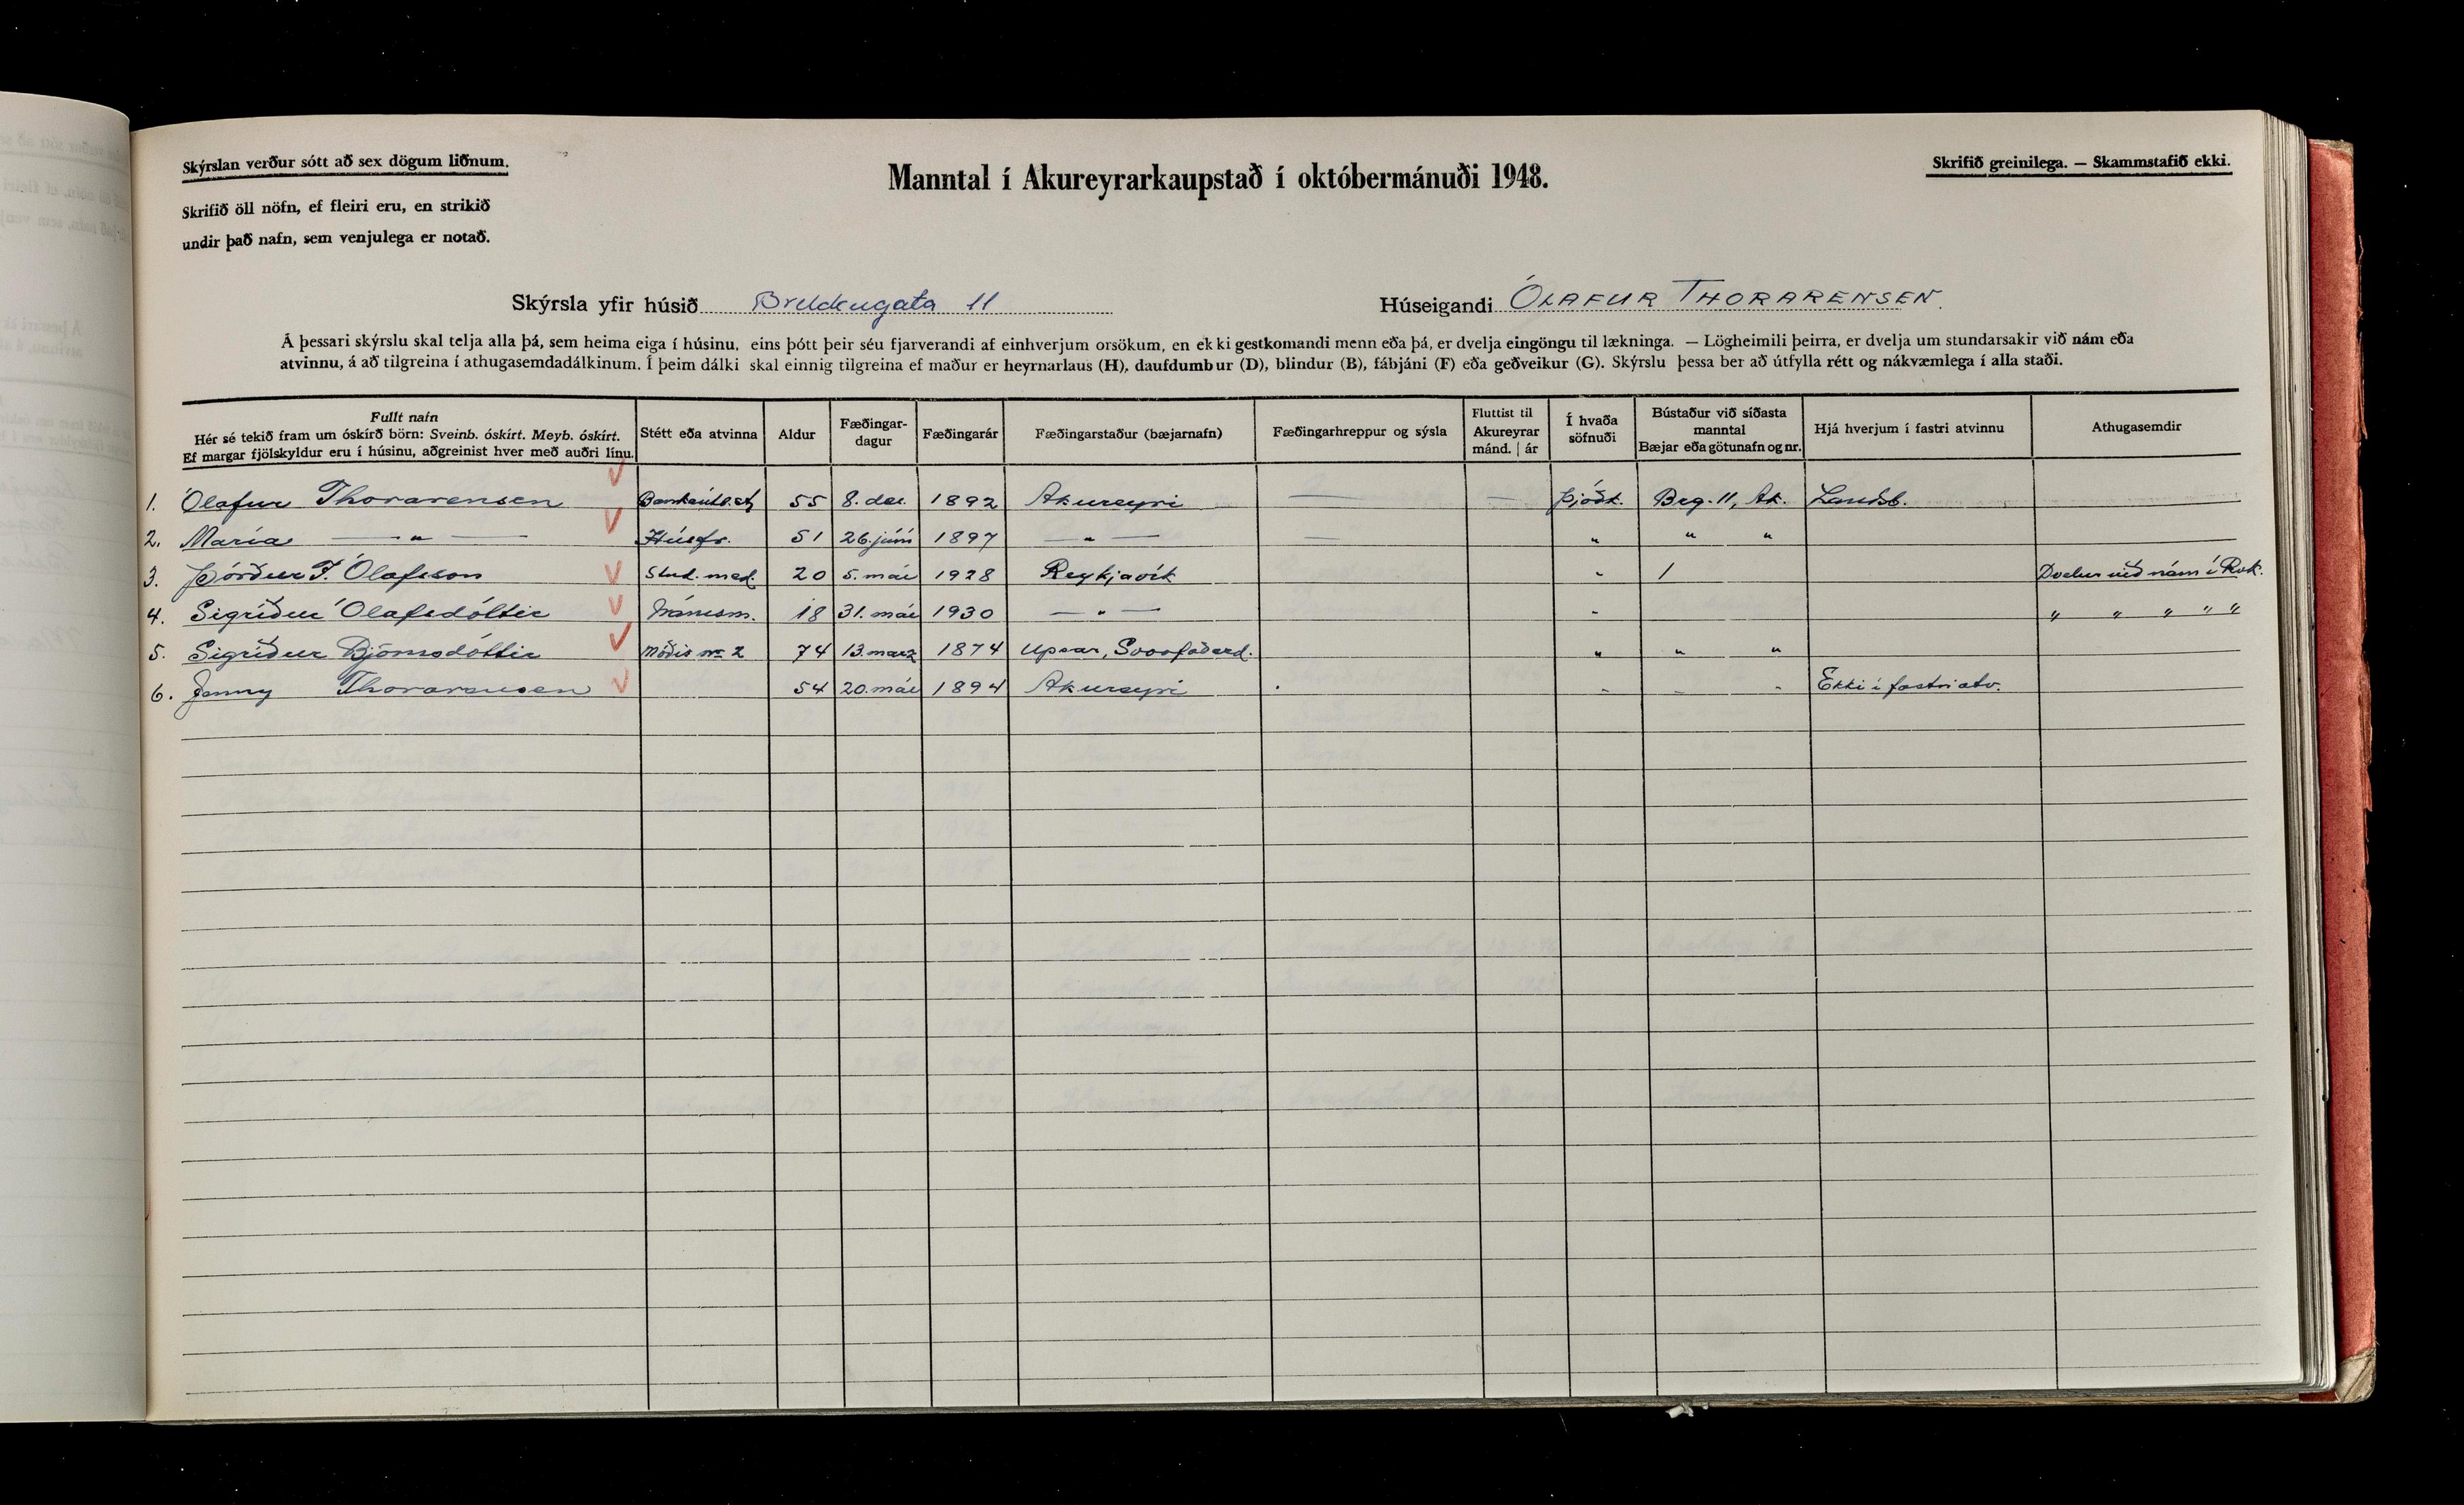 Skýrslan verður sótt að sex dögum liðnum.
Skrifið öll nöfn, ef fleiri eru, en strikið
undir það nafn, sem venjulega er notað.
Manntal í Akureyrarkaupstað í októbermánuði 1948.
Skrifið greinilega. — Skammstafið ekki.
Skýrsla yfir húsið Brekkugata 11
Húseigandi ÓLAFUR THORARENSEN.
Á þessari skýrslu skal telja alla þá, sem heima eiga í húsinu, eins þótt þeir séu fjarverandi af einhverjum orsökum, en ekki gestkomandi menn eða þá, er dvelja eingöngu til lækninga. — Lögheimili þeirra, er dvelja um stundarsakir við nám eða
atvinnu, á að tilgreina í athugasemdadálkinum. Í þeim dálki skal einnig tilgreina ef maður er heyrnarlaus (H), daufdumbur (D), blindur (B), fábjáni (F) eða geðveikur (G). Skýrslu þessa ber að útfylla rétt og nákvæmlega í alla staði.
Fullt nafn
Hér sé tekið fram um óskírð börn: Sveinb. óskírt. Meyb. óskírt.
Ef margar fjölskyldur eru í húsinu, aðgreinist hver með auðri línu.
Stétt eða atvinna
Aldur
Fæðingar-
dagur
Fæðingarár
Fæðingarstaður (bæjarnafn)
Fæðingarhreppur og sýsla
Fluttist til
Akureyrar
mánd. | ár
Í hvaða
söfnuði
Bústaður við síðasta
manntal
Bæjar eða götunafn og nr.
Hjá hverjum í fastri atvinnu
Athugasemdir
1. Ólafur Thorarensen Bankaútb.stj 55 8. des. 1892 Akureyri — — Þjóðk. Brg. 11, Ak. Landsb.
2. María — " — Húsfr. 51 26. júní 1897 — " — — " " "
3. Þórður T. Ólafsson Stud. med. 20 5. maí 1928 Reykjavík " / Dvelur við nám í Rvk.
4. Sigríður Ólafsdóttir Námsm. 18 31. maí 1930 — " — " " " " " "
5. Sigríður Björnsdóttir Móðir nr. 2 74 13. marz 1874 Upsar, Svarfaðard. " " "
6. Jenny Thorarensen 54 20. maí 1894 Akureyri " " " Ekki í fastri atv.